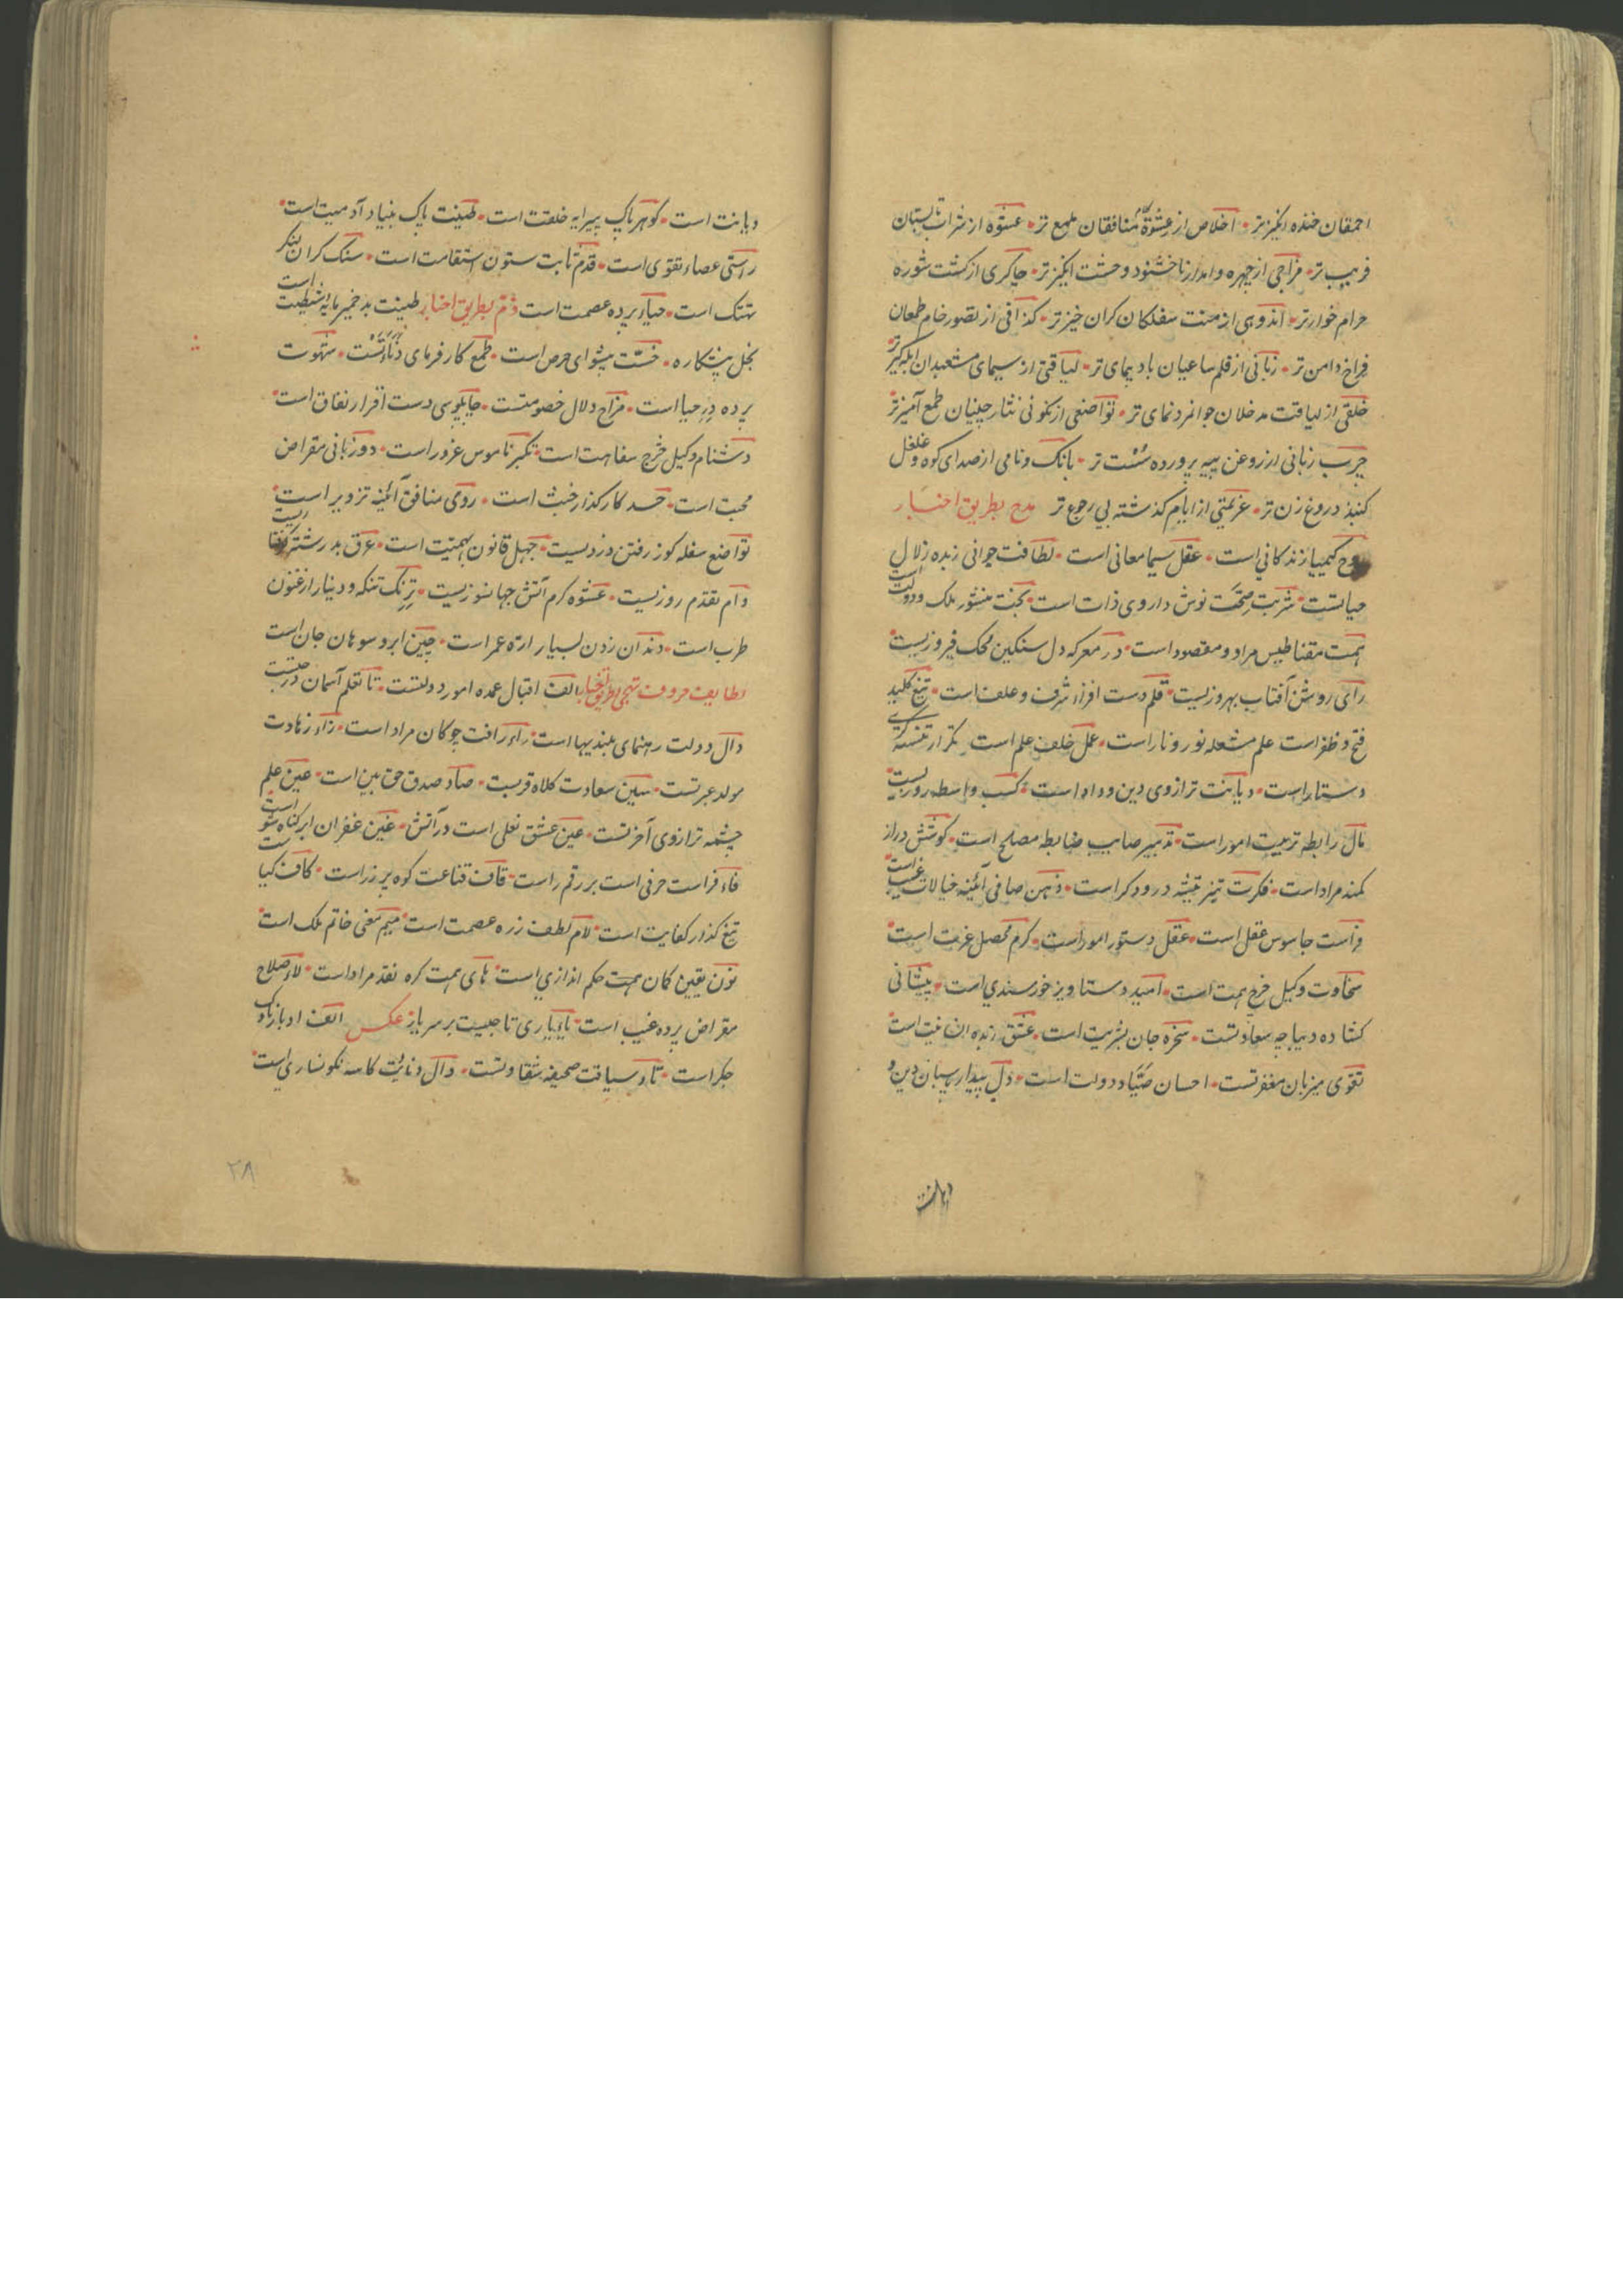 احمقان خنده انکیزتر • اخلاص از عشوهٔ منافقان ملمع تر • عشوه از شراب تابستان
فریب تر • مزاجی از چهره وامدار ناخشنود وحشت انکیز تر • چاکری از کشت شوره
حرام خوارتر • اندوهی از منت سفلکان کران خیز تر • کذافی از تصور خام طمعان
فراخ دامن تر • زبانی از قلم ساعیان باد پیمای تر • لیاقتی از سیمای مشعبدان ابله کیر تر
خلقی از لیاقت مدخلان جوانمرد نمای تر • تواضعی از نکونی نثار چینیان طمع آمیز تر
چرب زبانی از روغن پیه پرورده سست تر • بانک ونامی از صدای کوه و غلغل
کنبذ دروغ زن تر • عزیمتی از ایام کذشته بی رجوع تر مدح بطریق اخبار
روح کیمیا زندکانی است • عقل سیما معانی است • لطافت جوانی زبده زلال
حیاتست • شربت صحت نوش داروی ذات است • بخت منشور ملک ودولت است
همت مقناطیس مراد و مقصود است • در معرکه دل سنکین محک فیروزیست
رای روشن آفتاب بهروزیست • قلم دست افزار شرف وعلف است • تیغ کلید
فتح وظفر است علم مشعله نور ونار است • عمل خلف علم است تکرار
دستار است • دیانت ترازوی دین و داد است • کسب واسطه روزیست
مال رابطه تربیت امور است • تدبیر صایب ضابطه مصلح است • کوشش دراز
کمند مراد است • فکرت تیز تیشه درودکر است • ذهن صافی آئینه خیالات غیب است
فراست جاسوس عقل است • عقل دستور امور است • کرم محصل غربت است
سخاوت وکیل خرج همت است • امید دستاویز خورسندی است • پیشانی
کشاده دیباجه سعادتست • سخره جان بشریت است • عشق زبده انسانیت است
تقوی میزبان مغفرتست • احسان صیاد دولت است • دل بیدار پاسبان دین و
دیانت
دیانت است • کوهر پاک پیرایه خلقت است • طینت پاک بنیاد آدمیت است
راستی عصاء تقوی است • قدم ثابت ستون استقامت است • سنک کران لنکر
تهتک است • حیا پرده عصمت است ذم بطریق اخبار طینت بد خمیر مایه شیطنت است
بخل پیشکاره • خست پیشوای حرص است • طمع کارفرمای دنائتست • شهوت
پرده در حیا است • مزاح دلال خصومتست • چاپلوسی دست افزار نفاق است
دشنام وکیل خرج سفاهت است • تکبر ناموس غرور است • دو زبانی مقراض
محبت است • حسد کارکذار خبث است • روی منافق آئینه تزویر است
تواضع سفله کوز رفتن دزدیست • جهل قانون بهیمیت است • عرق بد رشته
وام بقدم روزیست • عشوه کرم آتش جهانسوزیست • ترنک تنکه و دینار ارغنون
طرب است • دندان زدن بسیار اره عمر است • چین ابرو سوهان جان است
لطایف حروف تهجی بطریق اخبار الف اقبال عمده امور دولتست • تا تعلم آسمان
دال دولت رهنمای بلندیها است • راء رافت چوکان مراد است • زاء زهادت
مولد عبرتست • سین سعادت کلاه قربست • صاد صدق حق بین است • عین علم
چشمه ترازوی آخرتست • عین عشق نعلی است در آتش • غین غفران ابر کناه شو است
فاء فراست حرفی است بر رقم راست • قاف قناعت کوه پر زر است • کاف کیاست
تیغ کذار کفایت است • لام لطف زره عصمت است • میم معنی خاتم ملک است
نون یقین کان همت حکم اندازی است • های همت کره نقد مراد است • لاء صلاح
مقراض پرده غیب است • یاء یاری تاجیست بر سر یار عکس الف ادبار ناوک
جکر است • تاء سیاقت صحیفه شقاوتست • دال دنائت کاسه نکونساری است
۲۸